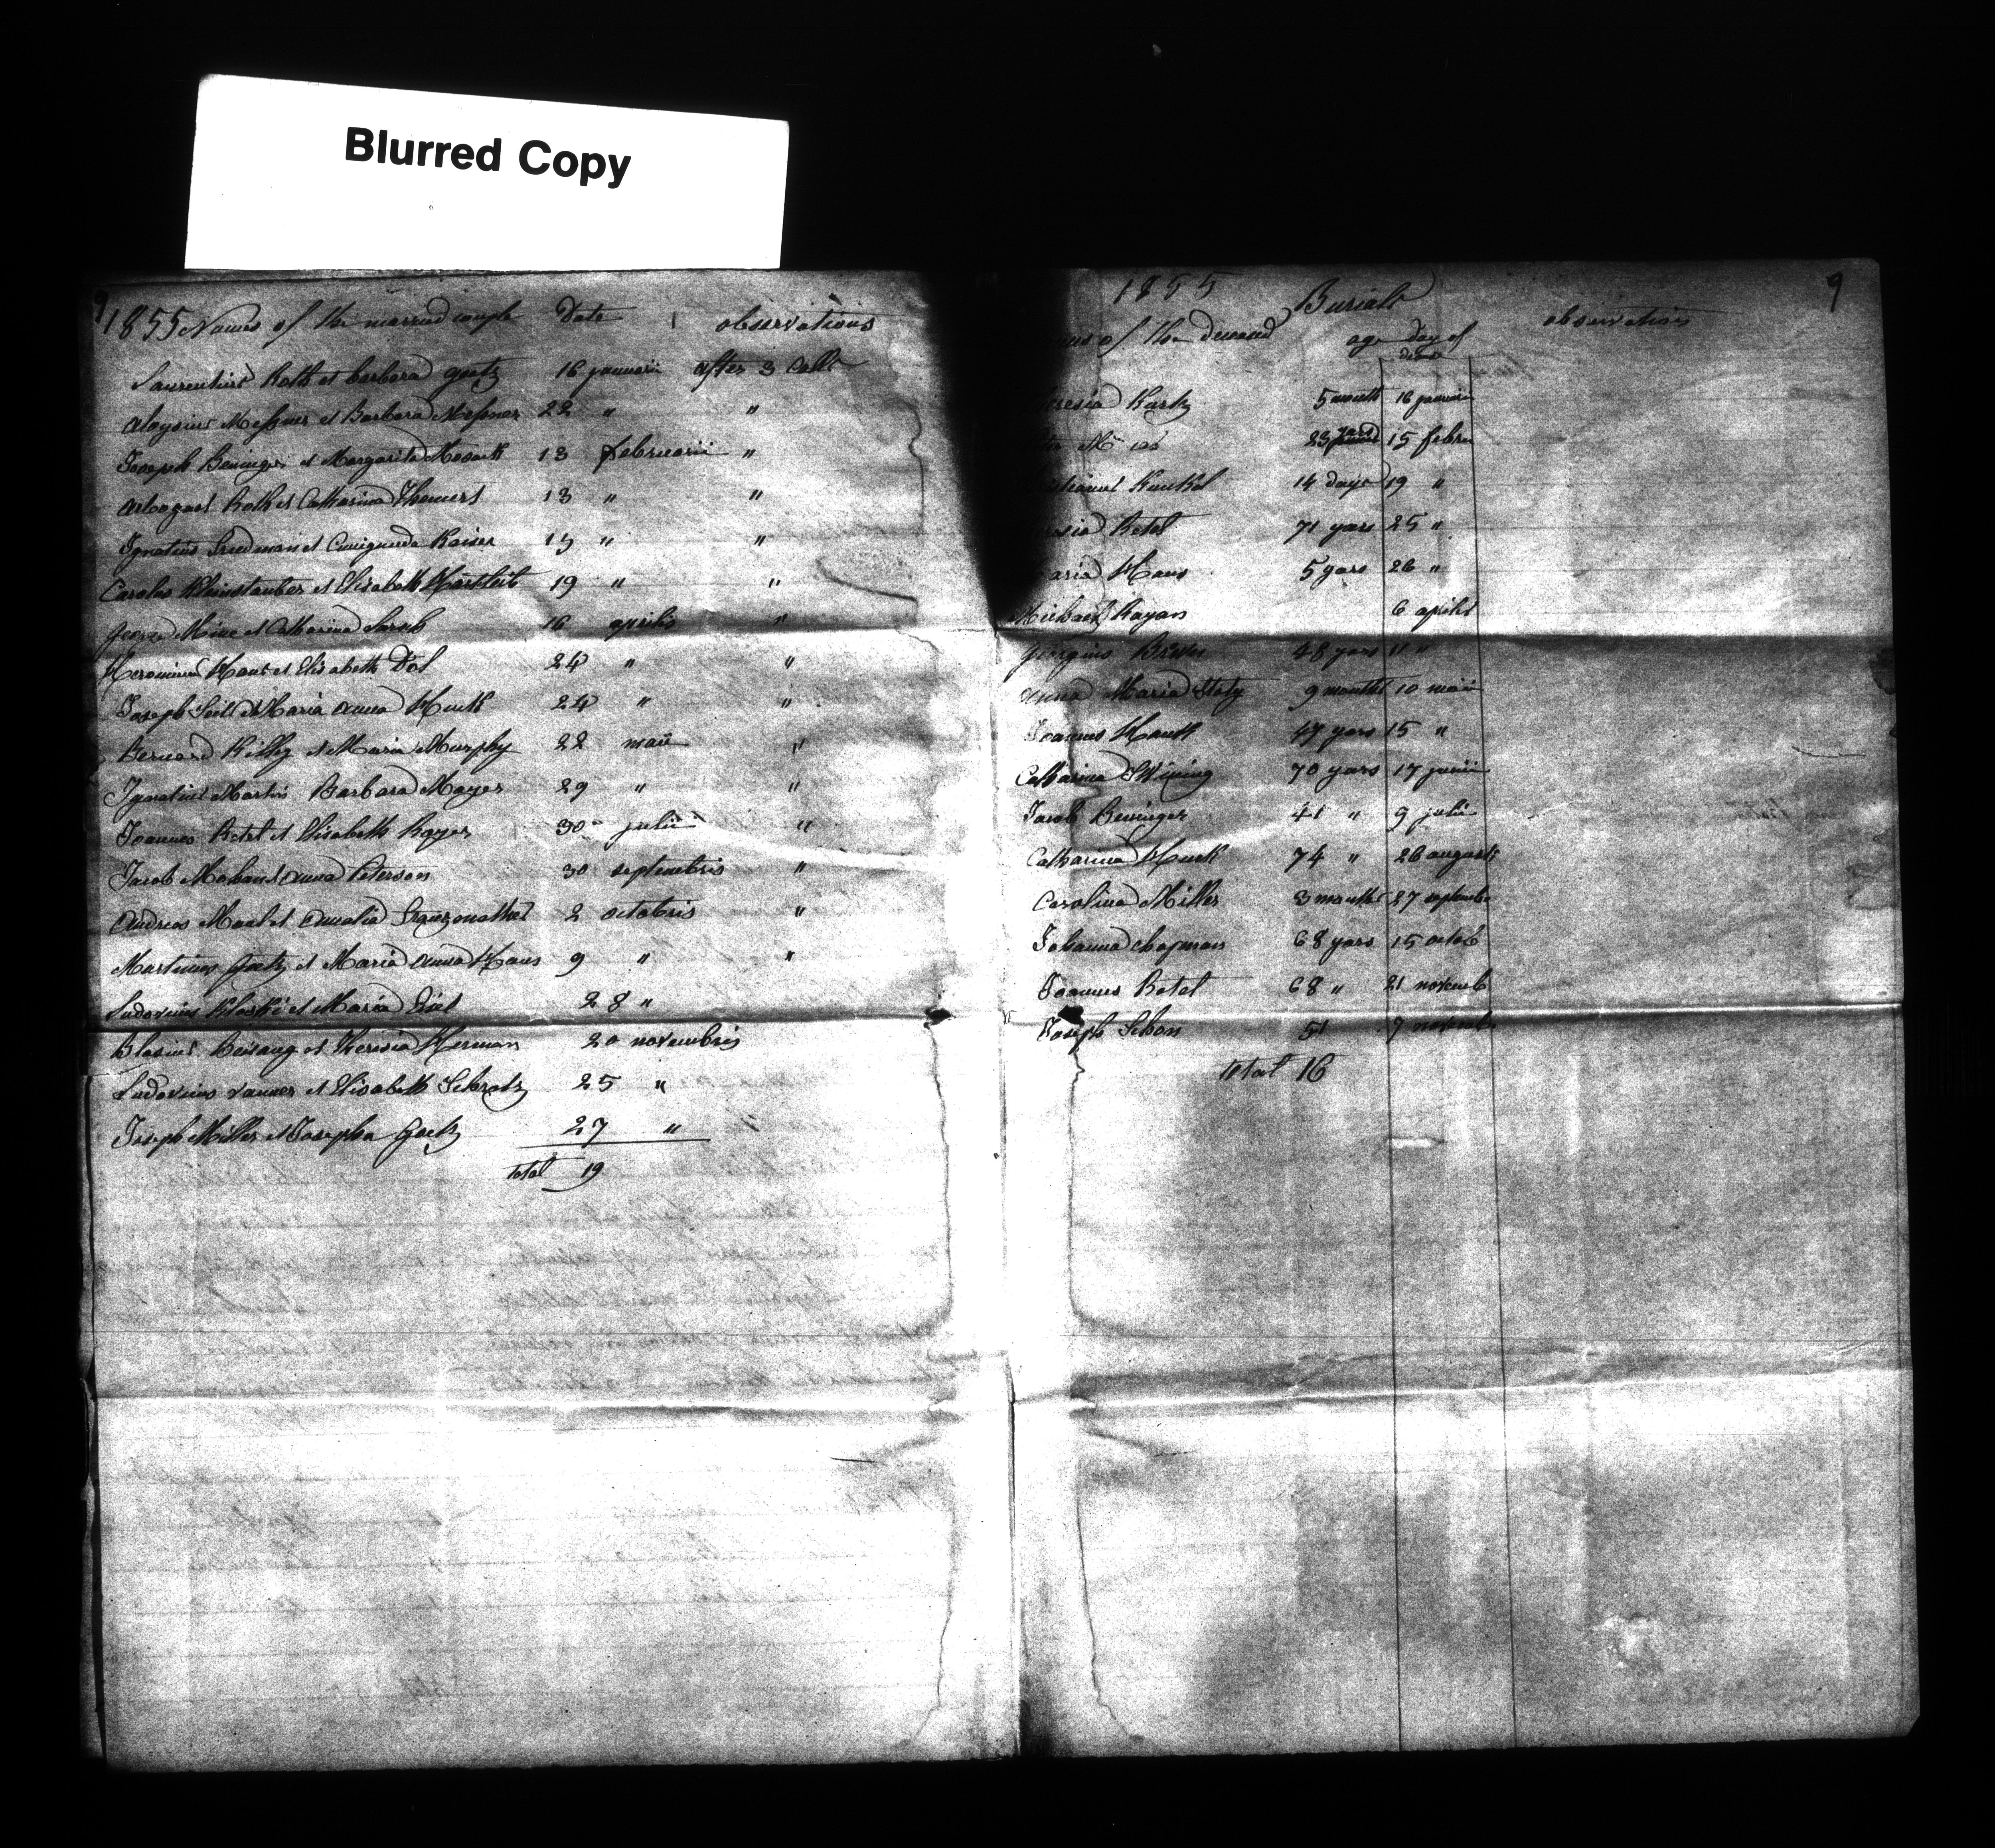 Blurred Copy
9
1855 Names of the married couple Date observations
Laurentius Roth et barbara goetz 16 januarii after 3 Calls
Aloysius Messner et Barbara Messner 22 " "
Joseph Beninger et Margarita 13 februarii "
Arbogast Roth et Catharina 13 " "
Ignatius Friedman et Cunigunda Kaiser 13 " "
Carolus Kleinstauber et Elisabeth 19 " "
George et Catharina 16 aprilis "
Heronimus Haus et Elisabeth Dol 24 " "
Joseph Seil et Maria Anna Huck 24 " "
Bernard Killy et Maria Murphy 22 maii "
Ignatius Martin Barbara Mayer 29 " "
Joannes Retel et Elisabeth Rayer 30 julii "
Jacob Mohan et Anna Peterson 30 septembris "
Andreas et Amalia 2 octobris "
Martinus Goetz et Maria Anna Haus 9 " "
Ludovicus et Maria 28 "
Blasius Beisang et Theresia Herman 20 novembris
Ludovicus vanner et Elisabeth Schratz 25 "
Joseph Miller et Josepha Goetz 27 "
total 19
1855 Burials 9
of the deceased age day of observations
5 month 16 januarii
23 years 15 febru
14 days 19 "
Retel 71 years 25 "
Maria Haus 5 years 26 "
Michael Rayan 6 aprilis
Georgius 48 years 11 "
Anna Maria 9 months 10 maii
Joannes Hautt 47 years 15 "
Catharina 70 years 17 junii
Jacob Beninger 41 " 9 julii
Catharina Huck 74 " 26 augusti
Carolina Miller 3 months 27 septembr
Johanna chapman 68 years 15 octob
Joannes Retel 68 " 21 novemb
Joseph Schan 51 7 novemb
total 16